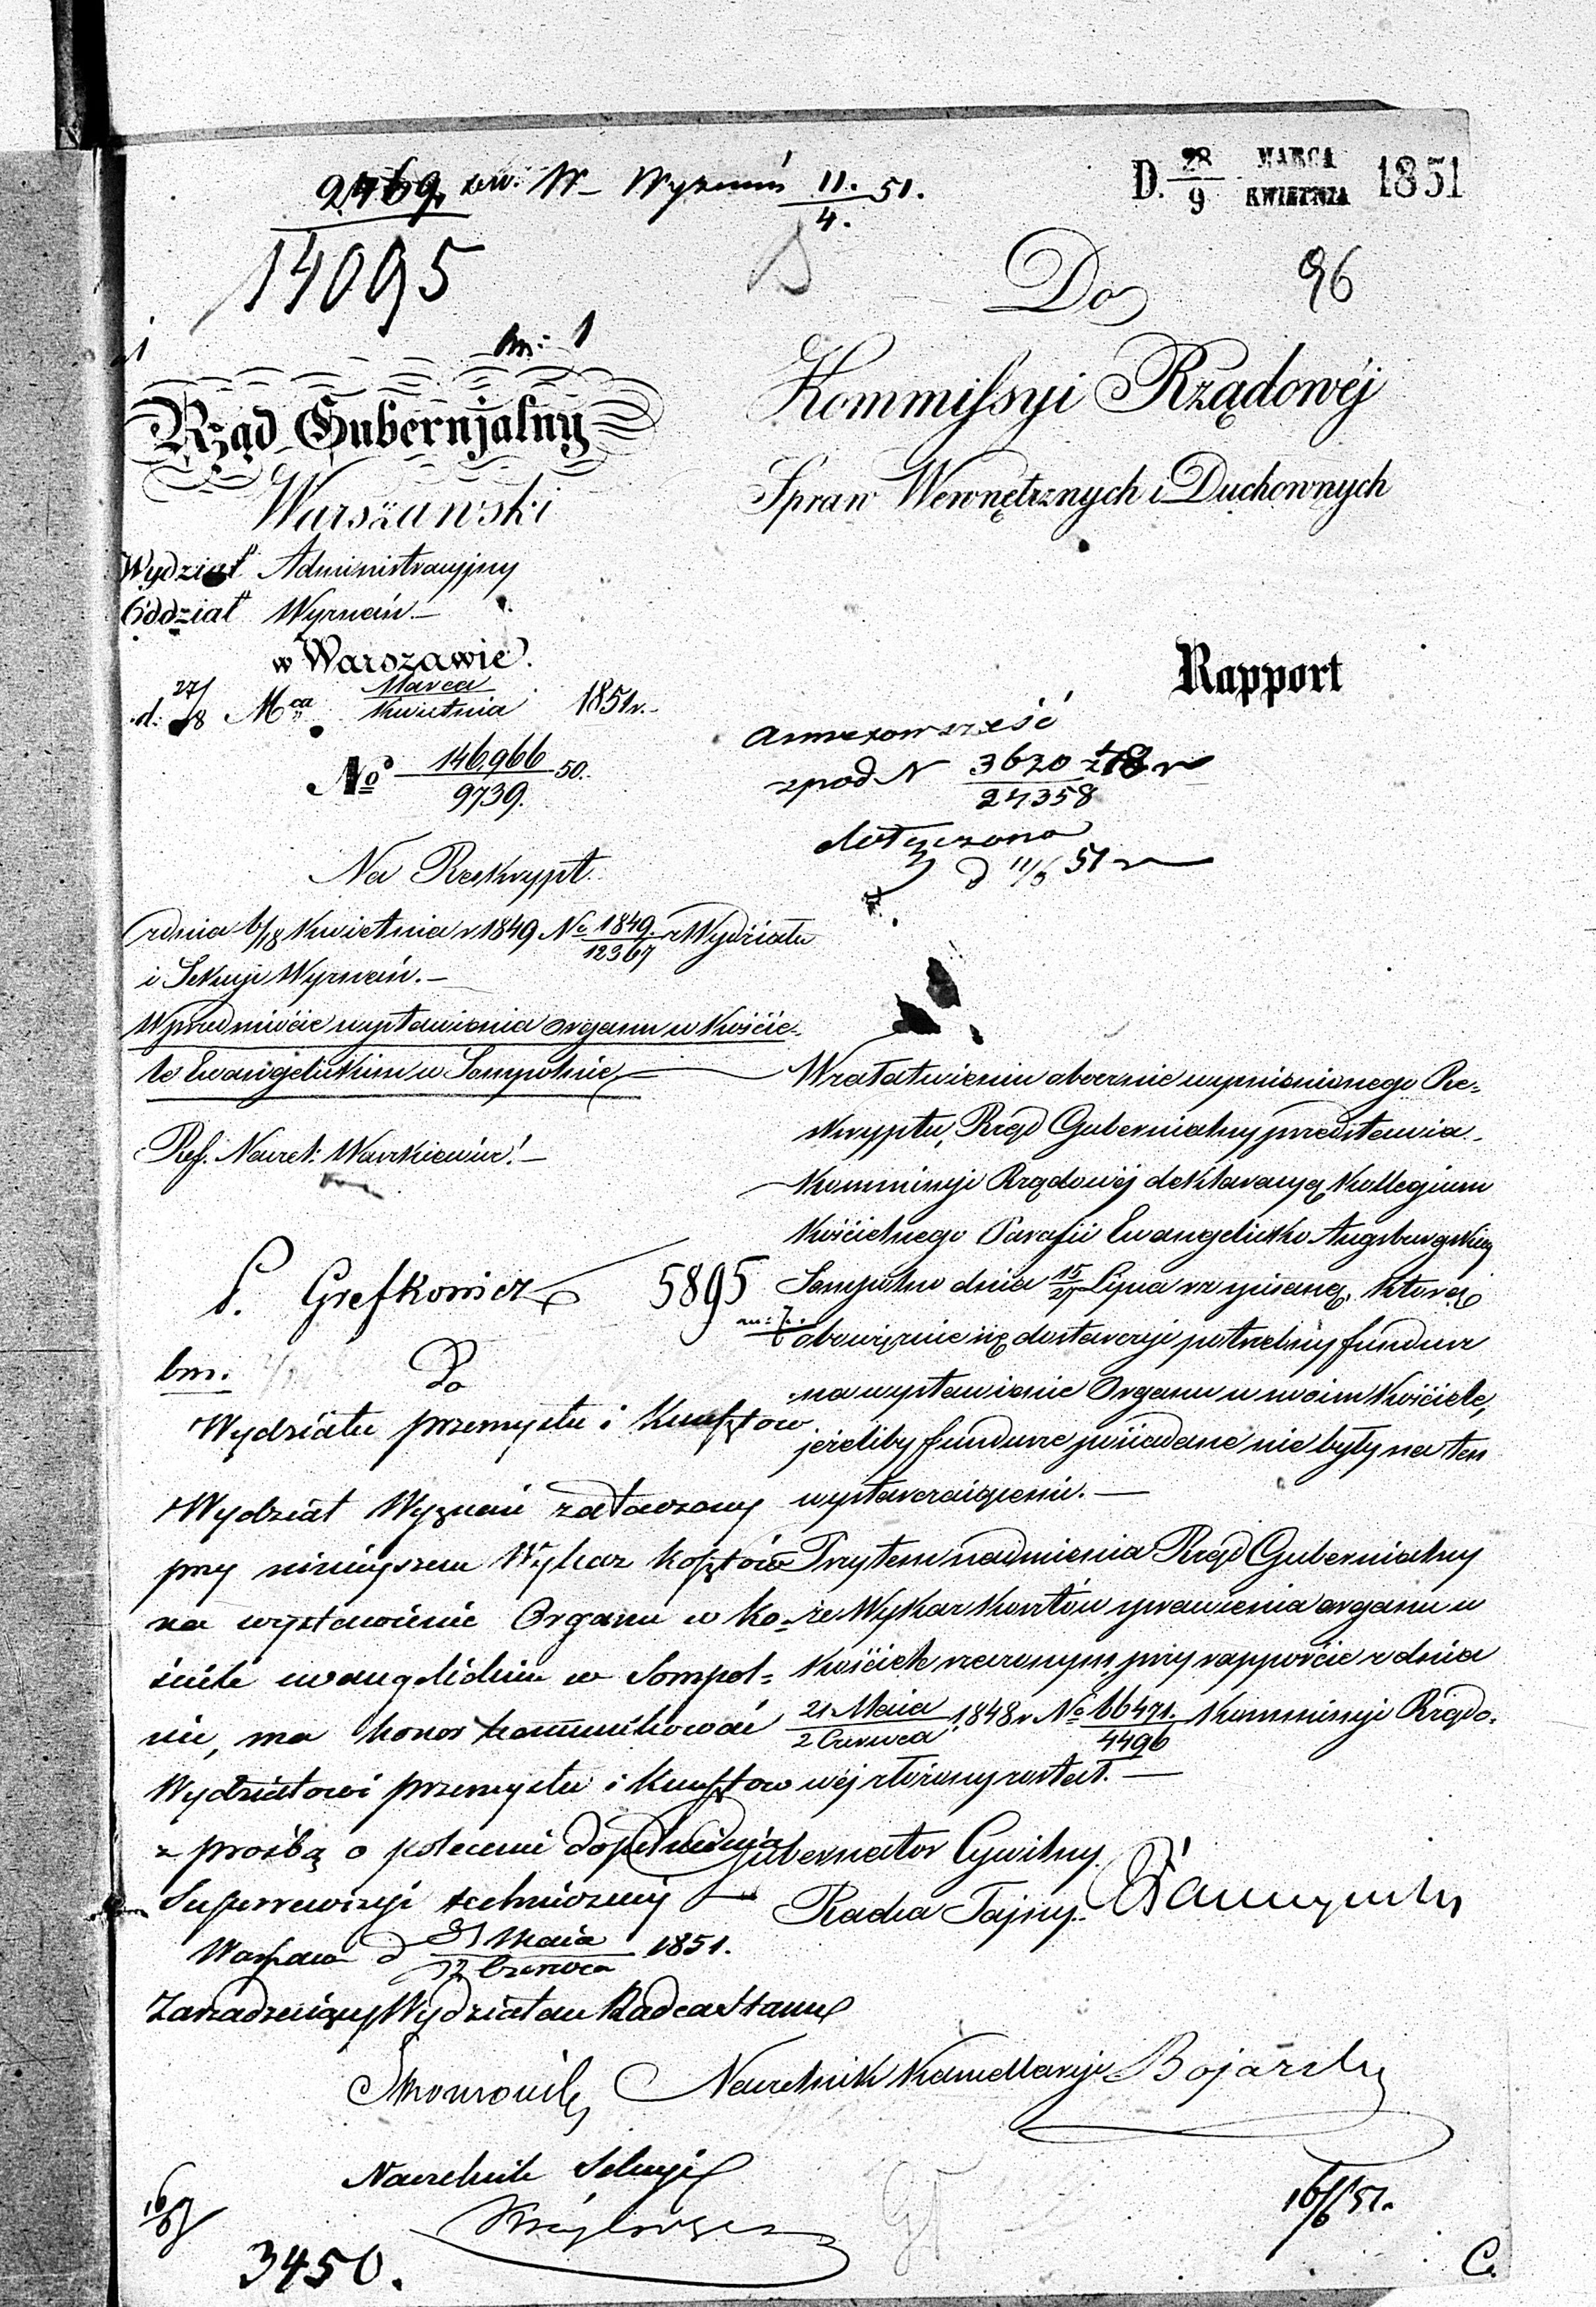 2469. W Wyznań 11./4. 51.
14095
D. 28/9 MARCA KWIETNIA 1851
96
Do
Kommissyi Rządowéj
Spraw Wewnętrznych i Duchownych
Rapport
Rząd Gubernjalny
Warszawski
Wydział Administracyjny
Oddział Wyznań.—
w Warszawie.
d. 27/8 Mca Marca/Kwietnia 1851 r.
No 146,966/9739. 50.
zpod N 3620/24358 z 48 r
dołączono
d 11/6 51 r
Na Reskrypt
z dnia 6/18 Kwietnia r 1849 No 1849./12367 z Wydziału
i Sekcyi Wyznań.—
W przedmiocie wystawienia Organu w Koście-
le Ewangelickim w Sompolnie
Ref. Naczel: Warkiewicz.—
W załatwieniu obocznie wymienionego Re-
skryptu, Rząd Gubernialny przedstawia
Kommissyi Rządowéj deklaracyą Kollegium
Kościelnego Parafii Ewangelicko Augsburgskiej
Sompolno dnia 15/27 Lipca rz pisaną, którą
obowięzuie się dostarczyć potrzebny fundusz
na wystawienie Organu w swoim Kościele,
jeżeliby fundusze posiadane nie były na ten
wystarczaiącemi.—
Przytem nadmienia Rząd Gubernialny
że Wykaz kosztów sprawienia organu w
Kościele rzeczonym przy rapporcie z dnia
21 Maia/2 Czerwca 1848 r No 66471./4496 Kommissyi Rządo-
wéj złożony został.—
Gubernator Cywilny
Radca Tajny
Naczelnik Kancellaryi Bojarski
S. Grefkowicz
5895
bm.
Do
Wydziału przemysłu i Kunsztow
Wydział Wyznań załączony
przy niniejszem Wykaz kosztów
na wystawienie Organu w ko-
ściele ewangelickim w Sompol-
nie, ma honor kommunikować
Wydziałowi przemysłu i Kunsztow
z prośbą o polecenie dopełnienia
Superrewizyi technicznej
Warszawa d 31 Maia/12 Czerwca 1851.
Zarządzający Wydziałem Radca Stanu
Naczelnik Sekcyi
16/6 51.
3450.
C.